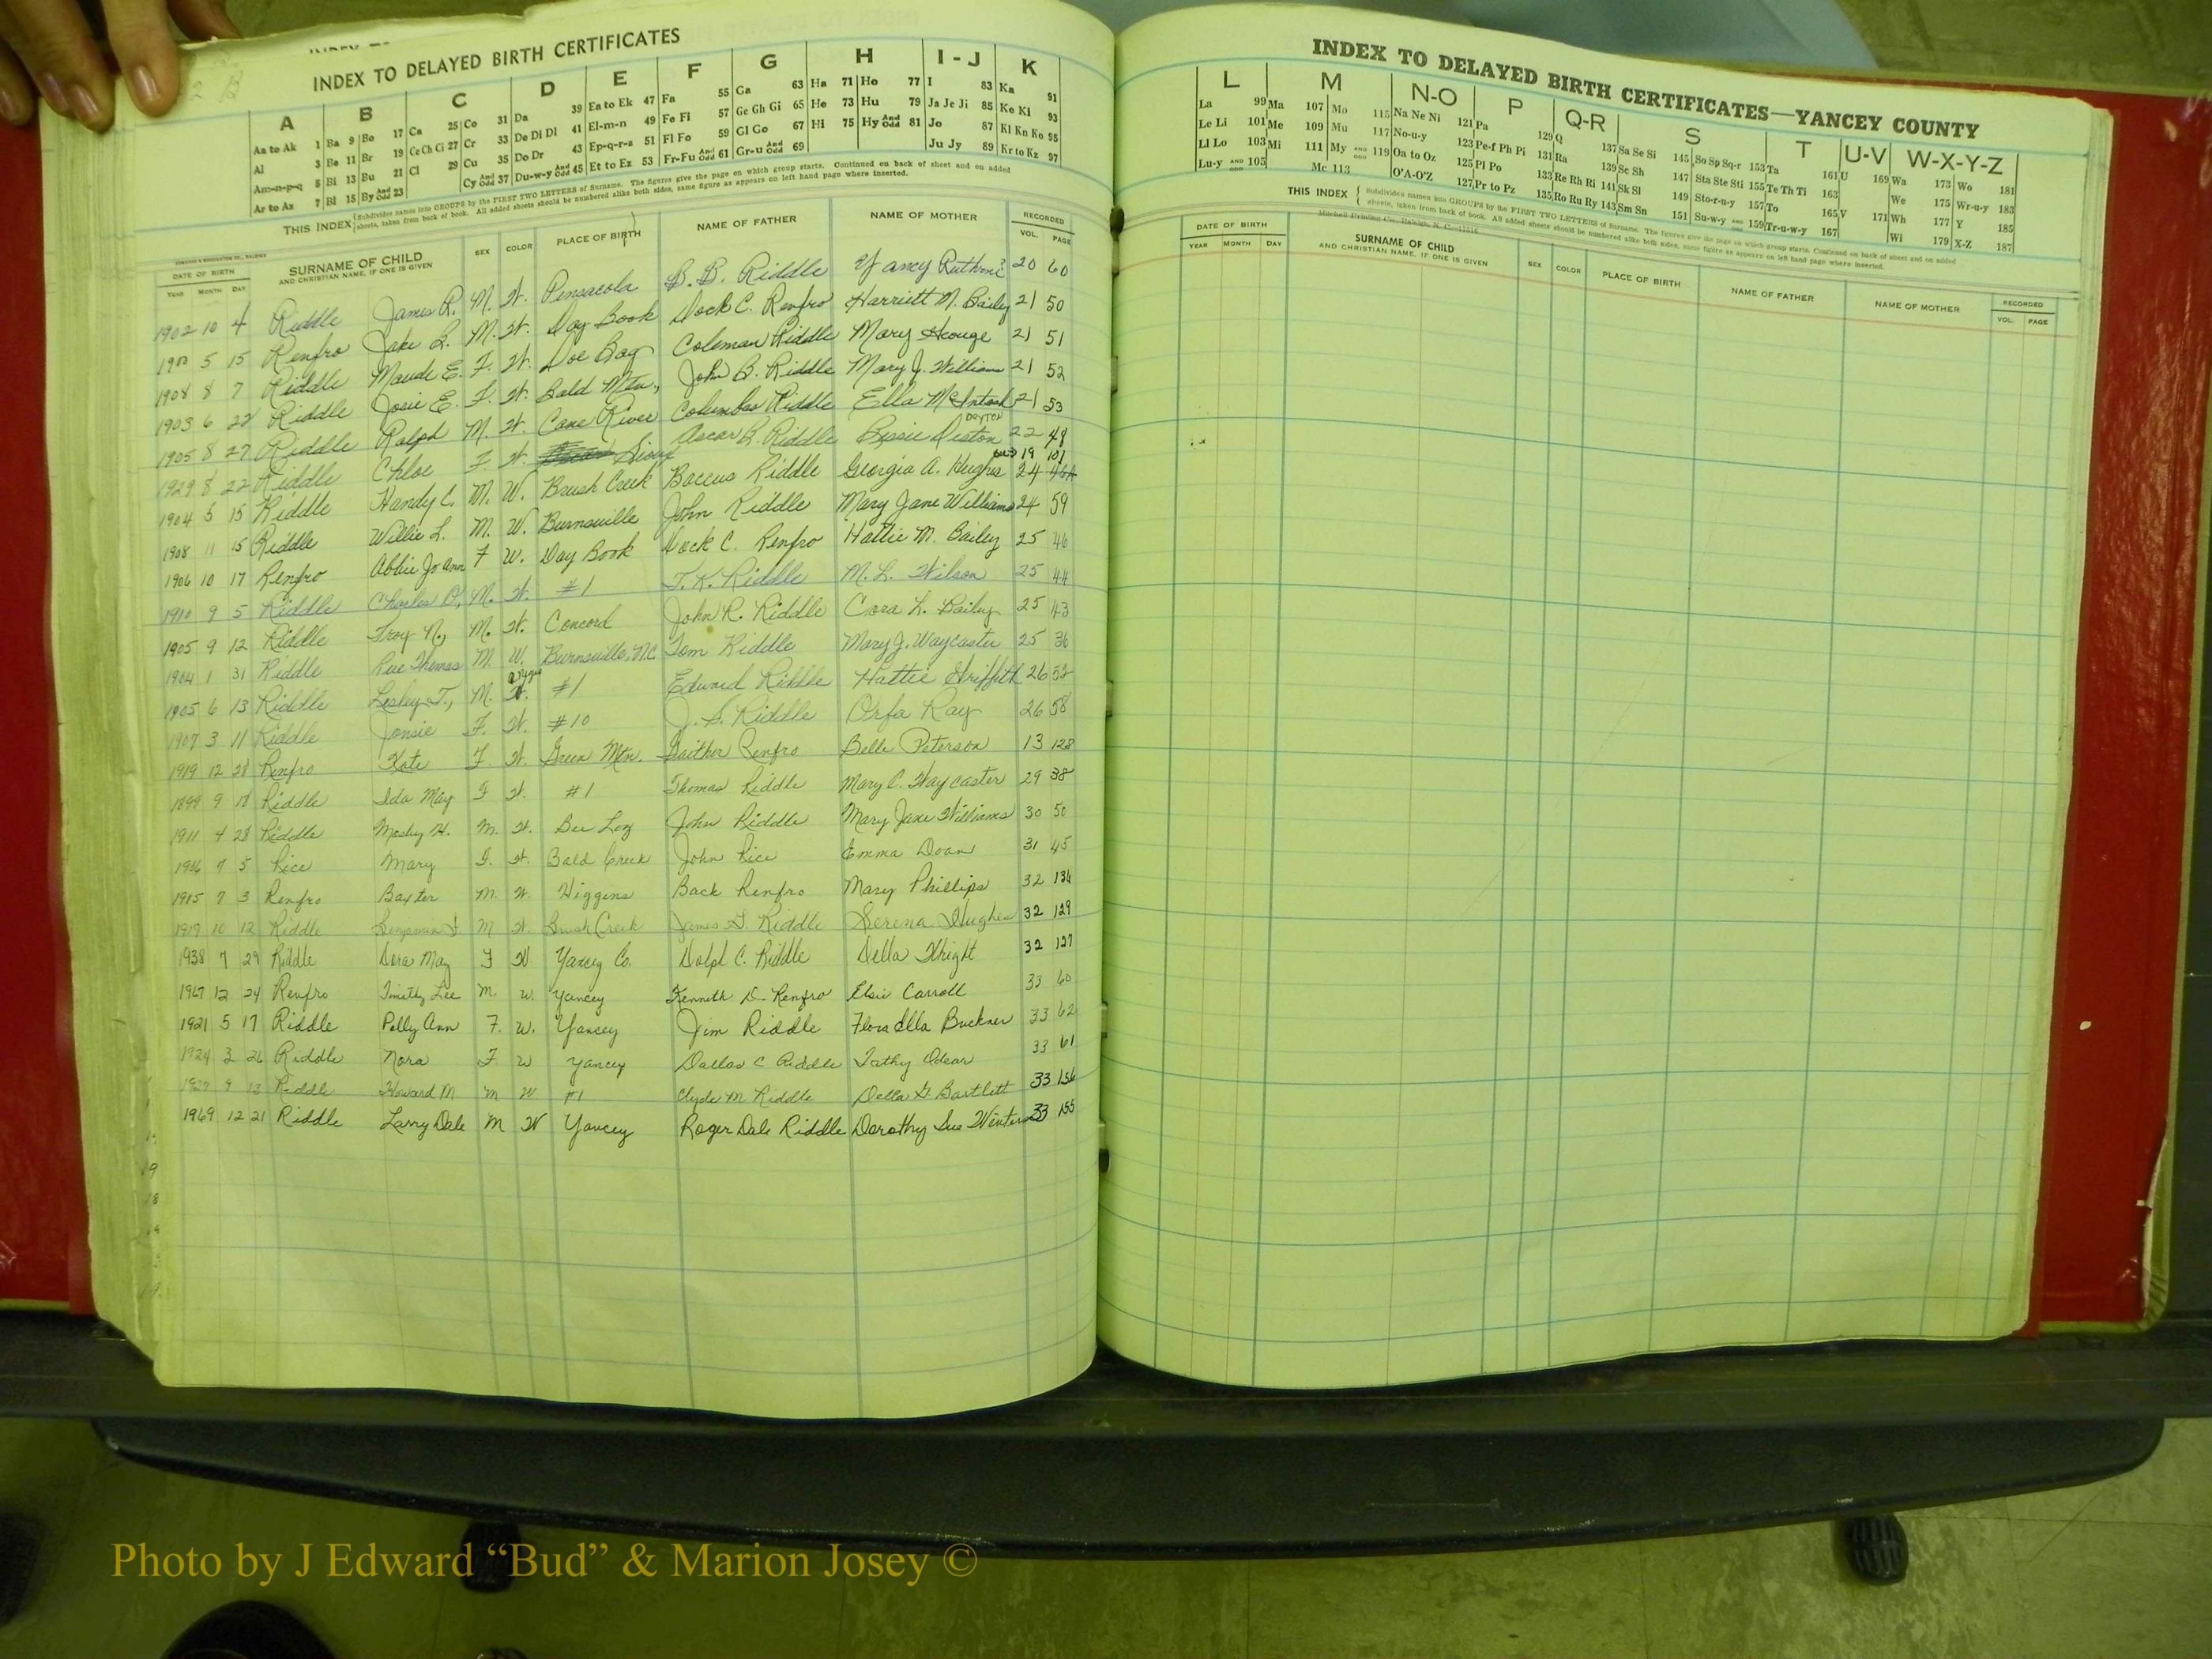 INDEX TO DELAYED BIRTH CERTIFICATES
A B C D E F G H I-J K
Aa to Ak 1 Ba 9 Bo 17 Ca 25 Co 31 Da 39 Ea to Ek 47 Fa 55 Ga 63 Ha 71 Ho 77 I 83 Ka 91
Al 3 Be 11 Br 19 Ce Ch Ci 27 Cr 33 De Di Dl 41 El-m-n 49 Fe Fi 57 Ge Gh Gi 65 He 73 Hu 79 Ja Je Ji 85 Ke Ki 93
Am-n-p-q 5 Bi 13 Bu 21 Cl 29 Cu 35 Do Dr 43 Ep-q-r-s 51 Fl Fo 59 Gl Go 67 Hi 75 Hy And Odd 81 Jo 87 Kl Kn Ko 95
Ar to Az 7 Bl 15 By And 23 Cy And Odd 37 Du-w-y And Odd 45 Et to Ez 53 Fr-Fu And Odd 61 Gr-u And Odd 69 Ju Jy 89 Kr to Kz 97
THIS INDEX Subdivides names into GROUPS by the FIRST TWO LETTERS of Surname. The figures give the page on which group starts. Continued on back of sheet and on added
sheets, taken from back of book. All added sheets should be numbered alike both sides, same figure as appears on left hand page where inserted.
DATE OF BIRTH SURNAME OF CHILD SEX COLOR PLACE OF BIRTH NAME OF FATHER NAME OF MOTHER RECORDED
YEAR MONTH DAY AND CHRISTIAN NAME, IF ONE IS GIVEN VOL. PAGE
1902 10 4 Riddle James R. M. W. Pensacola B. B. Riddle Yancy 20 60
5 15 Renfro Jake M. W. Day Book Dock C. Renfro Harriett N. Bailey 21 50
1908 8 7 Riddle Maude E. F. W. Doe Bag Coleman Riddle Mary 21 51
6 22 Riddle Josie E. F. W. Bald Mtn., John B. Riddle Mary J. Williams 21 52
1905 8 27 Riddle Ralph M. W. Cane River Columbus Riddle Ella McIntosh 21 53
1929 8 22 Riddle Chloe F. W. Sioux Oscar B. Riddle Bessie Deaton DEYTON 22 48
19 101
1904 5 15 Riddle Handy C. M. W. Brush Creek Baccus Riddle Georgia A. Hughes 24
1908 11 15 Riddle Willie L. M. W. Burnsville John Riddle Mary Jane Williams 24 59
1906 10 17 Renfro Abbie Jo Ann F W. Day Book Dock C. Renfro Hattie M. Bailey 25 46
1910 9 5 Riddle Charles M. W. #1 T. K. Riddle M. L. Wilson 25 44
1905 9 12 Riddle Troy N., M. W. Concord John R. Riddle Cora L. Bailey 25 43
1904 1 31 Riddle Thomas M. W. Burnsville, N.C. Tom Riddle Mary J. Waycaster 25 36
1905 6 13 Riddle Lesley T., M. W. #1 Edward Riddle Hattie Griffith 26 52
1907 3 11 Riddle Jonsie F. W. #10 J. S. Riddle Orfa Ray 26 58
1919 12 28 Renfro Kate F. W. Green Mtn. Gaither Renfro Belle Peterson 13 128
1899 9 18 Riddle Ida May F W. #1 Thomas Riddle Mary C. Waycaster 29 38
1911 4 28 Riddle M. W. Bee Log John Riddle Mary Jane Williams 30 50
7 5 Rice Mary F. W. Bald Creek John Rice Emma Doan 31 45
1915 7 3 Renfro Baxter M. W. Higgins Back Renfro Mary Phillips 32 134
10 12 Riddle Benjamin F M W. Brush Creek James Riddle Serena Hughes 32 129
1938 7 29 Riddle Dora May F W Yancey Co. Dolph C. Riddle Della Wright 32 127
1967 12 24 Renfro Timothy Lee M. W. Yancey Kenneth D. Renfro Elsie Carroll 33 60
1921 5 17 Riddle Polly Ann F. W. Yancey Jim Riddle Flora Ella Buckner 33 62
1924 2 26 Riddle Nora F. W Yancey Dallas C Riddle 33 61
9 13 Riddle Howard M M W #1 Clyde M. Riddle Della Bartlett 33 156
1969 12 21 Riddle Larry Dale M W Yancey Roger Dale Riddle Dorothy Sue 33 155
INDEX TO DELAYED BIRTH CERTIFICATES—YANCEY COUNTY
L M N-O P Q-R S T U-V W-X-Y-Z
La 99 Ma 107 Mo 115 Na Ne Ni 121 Pa 129 Q 137 Sa Se Si 145 So Sp Sq-r 153 Ta 161 U 169 Wa 173 Wo 181
Le Li 101 Me 109 Mu 117 No-u-y 123 Pe-f Ph Pi 131 Ra 139 Sc Sh 147 Sta Ste Sti 155 Te Th Ti 163 We 175 Wr-u-y 183
Ll Lo 103 Mi 111 My AND ODD 119 Oa to Oz 125 Pl Po 133 Re Rh Ri 141 Sk Sl 149 Sto-r-u-y 157 To 165 V 171 Wh 177 Y 185
Lu-y AND ODD 105 Mc 113 O'A-O'Z 127 Pr to Pz 135 Ro Ru Ry 143 Sm Sn 151 Su-w-y AND ODD 159 Tr-u-w-y 167 Wi 179 X-Z 187
THIS INDEX Subdivides names into GROUPS by the FIRST TWO LETTERS of Surname. The figures give the page on which group starts. Continued on back of sheet and on added
sheets, taken from back of book. All added sheets should be numbered alike both sides, same figure as appears on left hand page where inserted.
Mitchell Printing Co., Raleigh, N. C.
DATE OF BIRTH SURNAME OF CHILD SEX COLOR PLACE OF BIRTH NAME OF FATHER NAME OF MOTHER RECORDED
YEAR MONTH DAY AND CHRISTIAN NAME, IF ONE IS GIVEN VOL. PAGE
Photo by J Edward “Bud” & Marion Josey ©